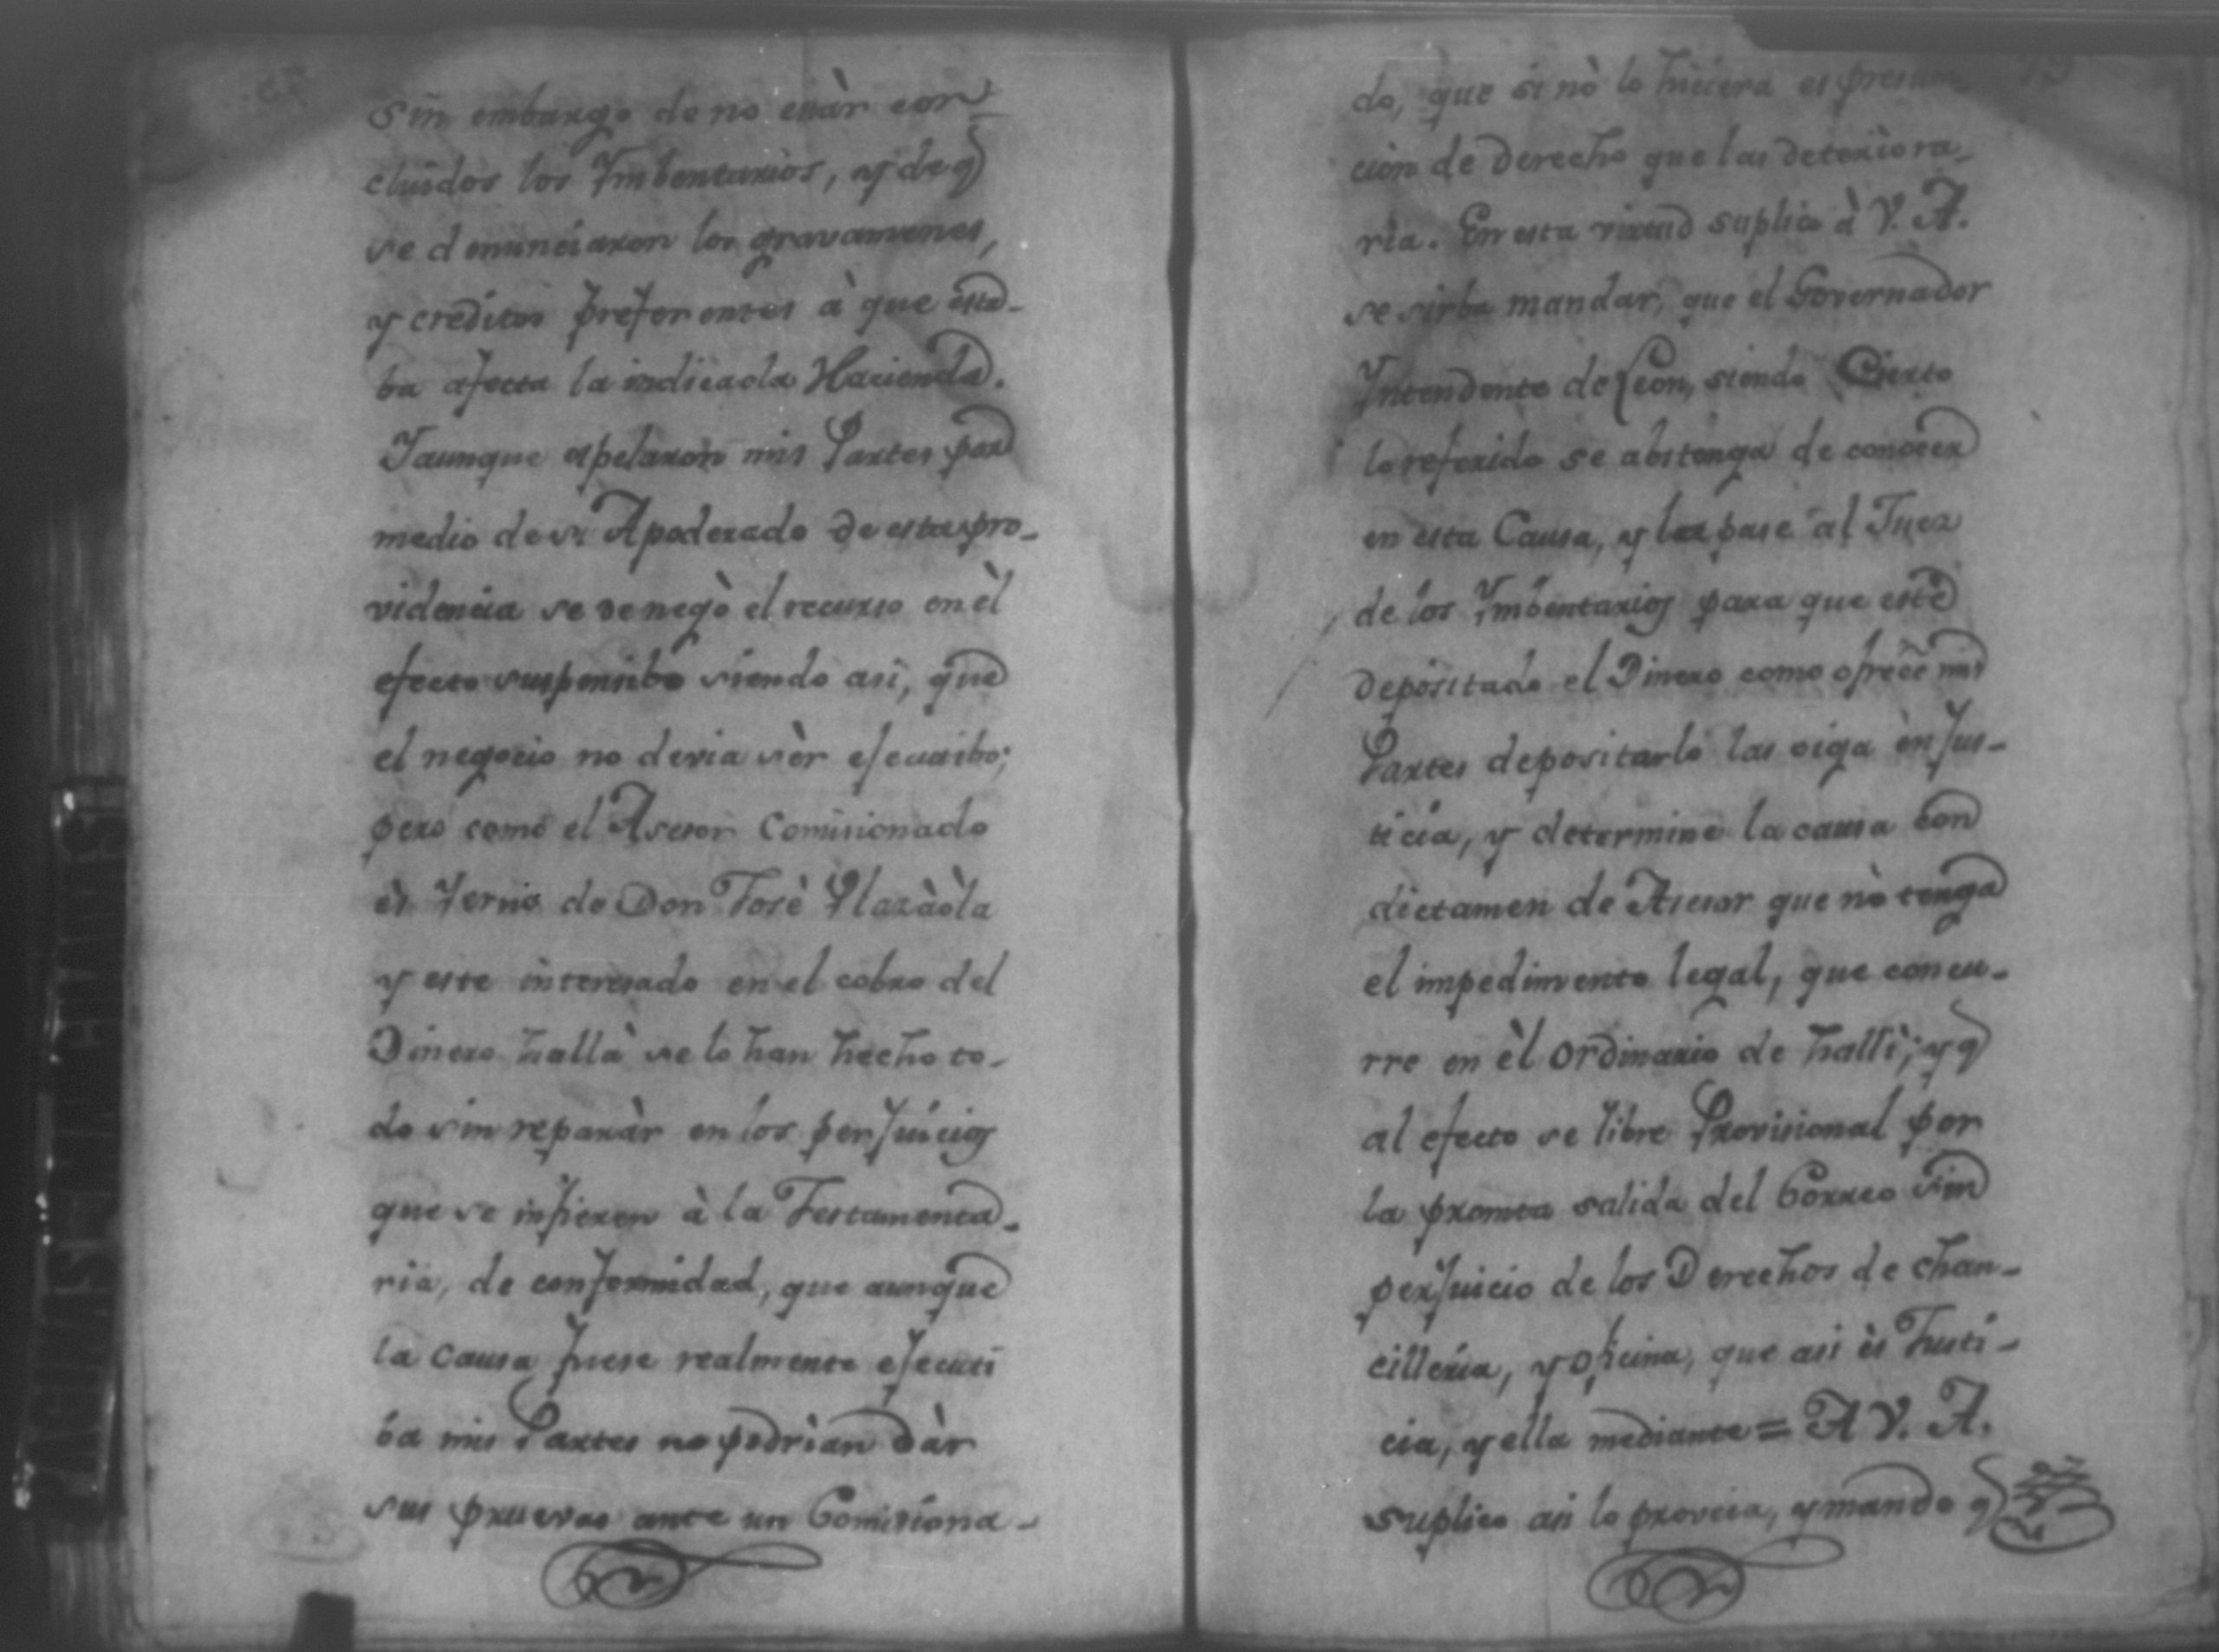 sin embargo de no estàr con-
cluidos los Ymbentarios, y de q
se denunciaron los gravamenes,
y creditos preferentes à que esta-
ba afecta la indicada Hacienda.
Yaunque apelaron mis Partes por
medio de su Apoderado de esta pro-
videncia se denegò el recurso en èl
efecto suspensibo siendo asi, que
el negocio no devia sèr ejecutibo;
pero como el Asesor Comisionado
ès Yerno de Don Josè Plazàola
y este interesado en el cobro del
Dinero hallà se lo han hecho to-
do sin reparàr en los perjuicios
que se infieren à la Testamenta-
ria, de conformidad, que aunque
la causa fuese realmente ejecuti
ba mis Partes no podrian dàr
sus pruevas ante un Comisiona-
do, que si nò lo hiciera es presun
cion de derecho que las deteriora-
ria. En esta virtud suplico à V. A.
se sirba mandar, que el Governador
Yntendente de Leon, siendo Cierto
lo referido se abstenga de conocer
en esta Causa, y las pase al Juez
de los Ymbentarios para que estè
depositado el Dinero como ofrece mis
Partes depositarlo las oiga en Jus-
ticia, y determine la causa con
dictamen de Asesor que nò tenga
el impedimento legal, que concu-
rre en èl ordinario de hallì; y q
al efecto se libre Provisional por
la pronta salida del Correo sin
perjuicio de los Derechos de chan-
cilleria, y oficina, que asi ès Justi-
cia, y ella mediante = A V. A.
suplico asi lo provea, y mande q